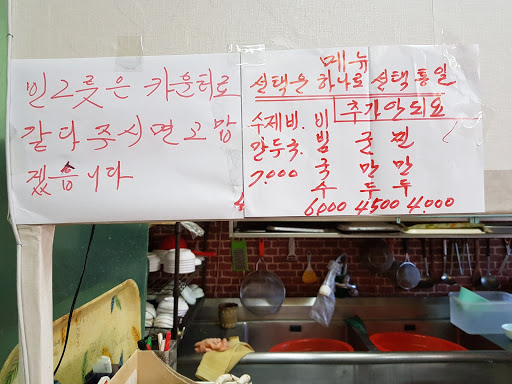 빈그릇은 카운터로
갖다 주시면 고맙
겠습니다
메뉴
선택은 하나로 선택 통일
추가 악되요
수제비.
만두국.
7.000
비빔국수
6000
군만두
4500
찐만두
4.000